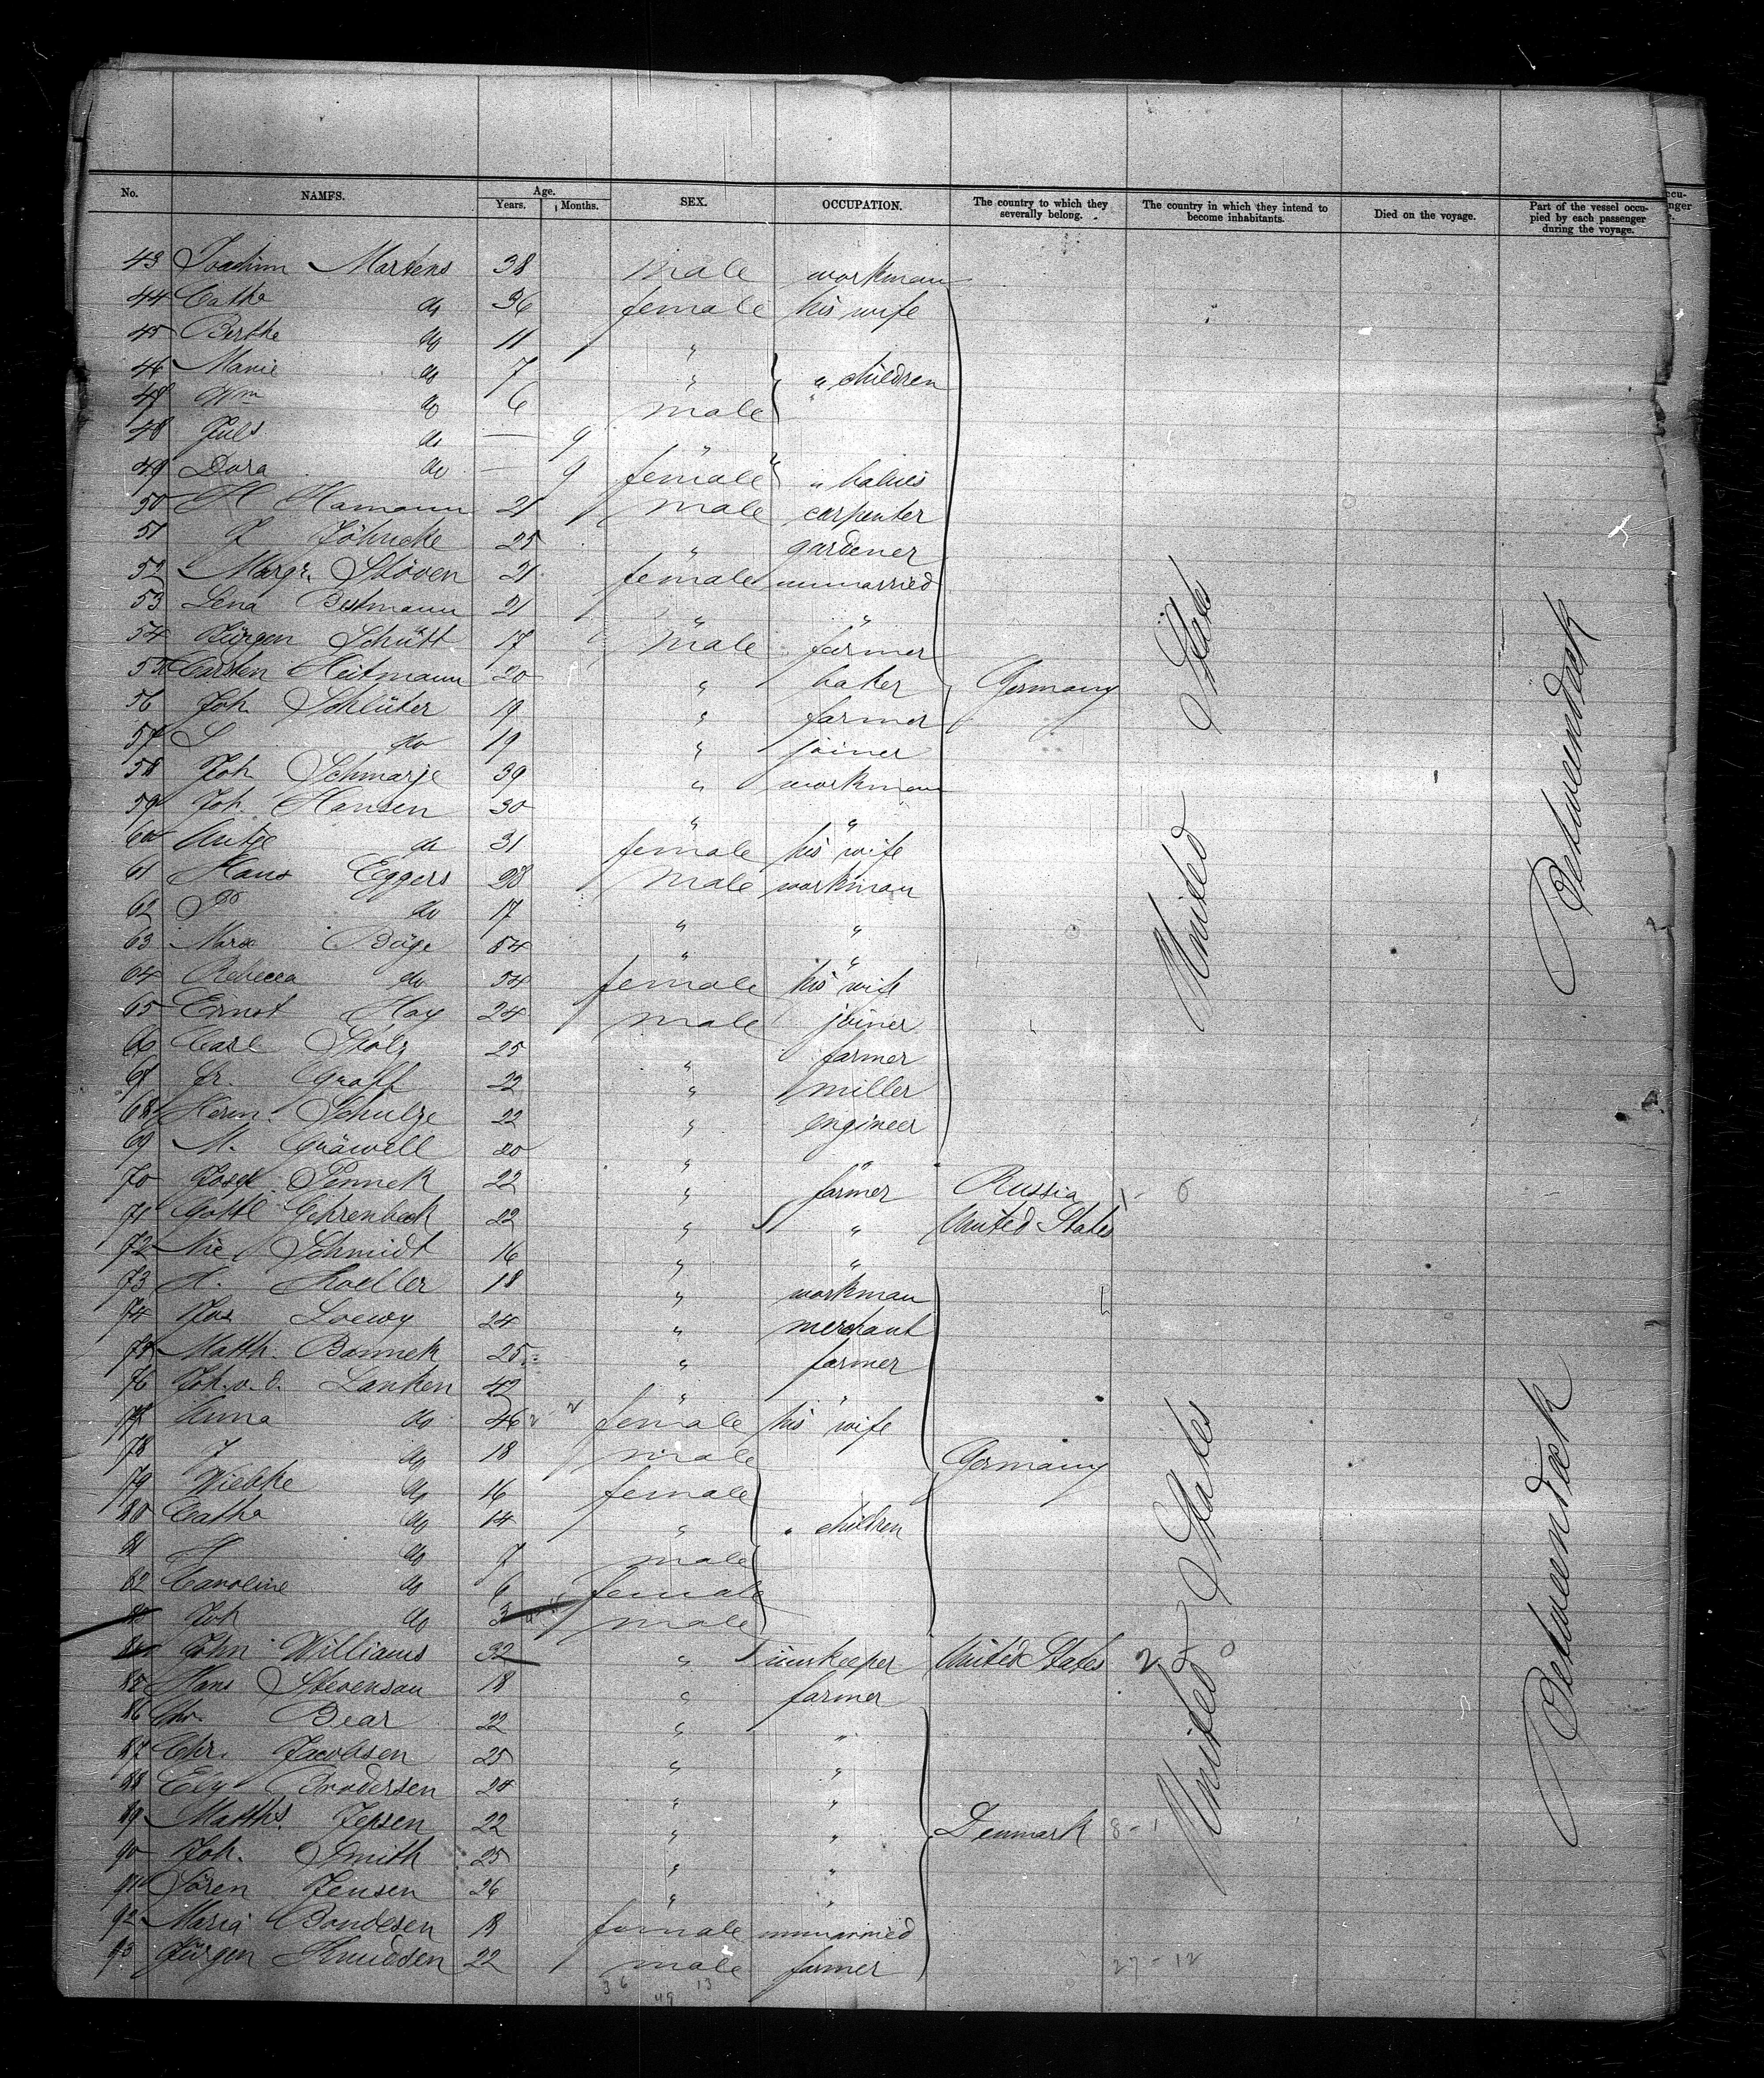 No. NAMES. Age. Years. Months. SEX. OCCUPATION. The country to which they severally belong. The country in which they intend to become inhabitants. Died on the voyage. Part of the vessel occupied by each passenger during the voyage.
43 Joachim Martens 38 male workman
44 Catha do 36 female his wife
45 Berthe do 11 "
46 Marie do 7 " " children
47 Wm do 6 male "
48 Juls do — 9 "
49 Dora do — 9 female " babies
50 H Hamann 21 male carpenter
51 J Jöhncke 25 " gardener
52 Margr. Stöven 21 female unmarried
53 Lena Bestmann 21 " "
54 Jürgen Schütt 17 male farmer
55 Carsten Heitmann 20 " baker Germany
56 Joh. Schlüter 19 " farmer
57 S do 19 " joiner
58 Joh Schmarje 39 " workman
59 Joh. Hansen 30 " "
60 Antje do 31 female his wife
61 Hans Eggers 28 male workman
62 do 17 " "
63 Marx Büge 54 " "
64 Rebecca do 54 female his wife
65 Ernst Hay 24 male joiner
66 Carl Stolz 25 " farmer
67 Fr. Graff 22 " miller
68 Herm. Schulze 22 " engineer
69 M. Gräwell 20 " "
70 Josef Pennek 22 " farmer Russia 1 - 6
71 Gottl Gehrenbeck 22 " " United States
72 Nic Schmidt 16 " "
73 H. Koeller 18 " workman
74 Jos Loewy 24 " merchant
75 Matth. Bannek 25 " farmer
76 Joh. v. d. Lanken 42 "
77 Anna do 46 female his wife
78 J do 18 male Germany
79 Wiebke do 16 female
80 Catha do 14 " " children
81 H do 7 male
82 Caroline do 6 female
83 Joh do 3 male
84 John Williams 32 " innkeeper United States 2
85 Hans Stevensen 18 " farmer
86 Chr. Bear 22 " "
87 Chr. Jacobsen 25 " "
88 Brodersen 24 " "
89 Matths. Jepsen 22 " " Denmark 8 - 1
90 Joh. Smith 25 " "
91 Sören Jensen 26 " "
92 Maria Bondesen 18 female unmarried
93 Jürgen Knudsen 22 male farmer 27 - 12
36 49 13
United States
United States
Betweendeck
Betweendeck